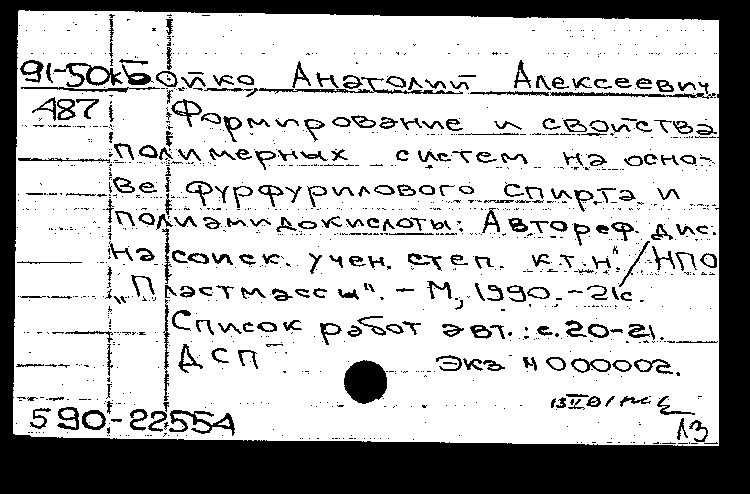 91-50к Бойко, Анатолий Алексеевич
487 Формирование и свойства
полимерных систем на осно-
ве фурфурилового спирта и
полиамидокислоты: Автореф. дис.
на соиск. учен. степ. к.т.н. / НПО
„Пластмассы". - М, 1990. - 21с.
Список работ авт.: с. 20-21.
ДСП Экз N 000002.
590-2255А
13